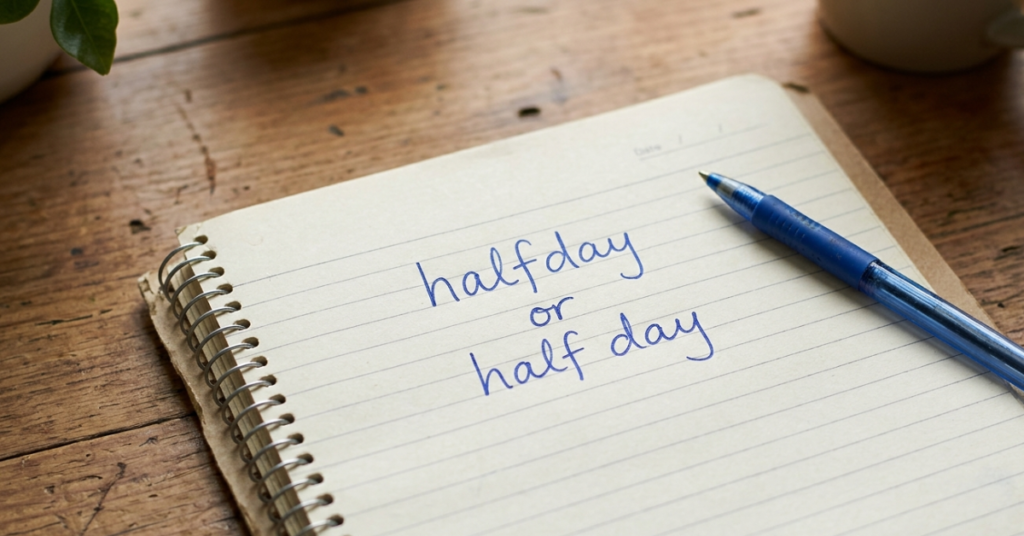 Date / /
halfday
or
half day